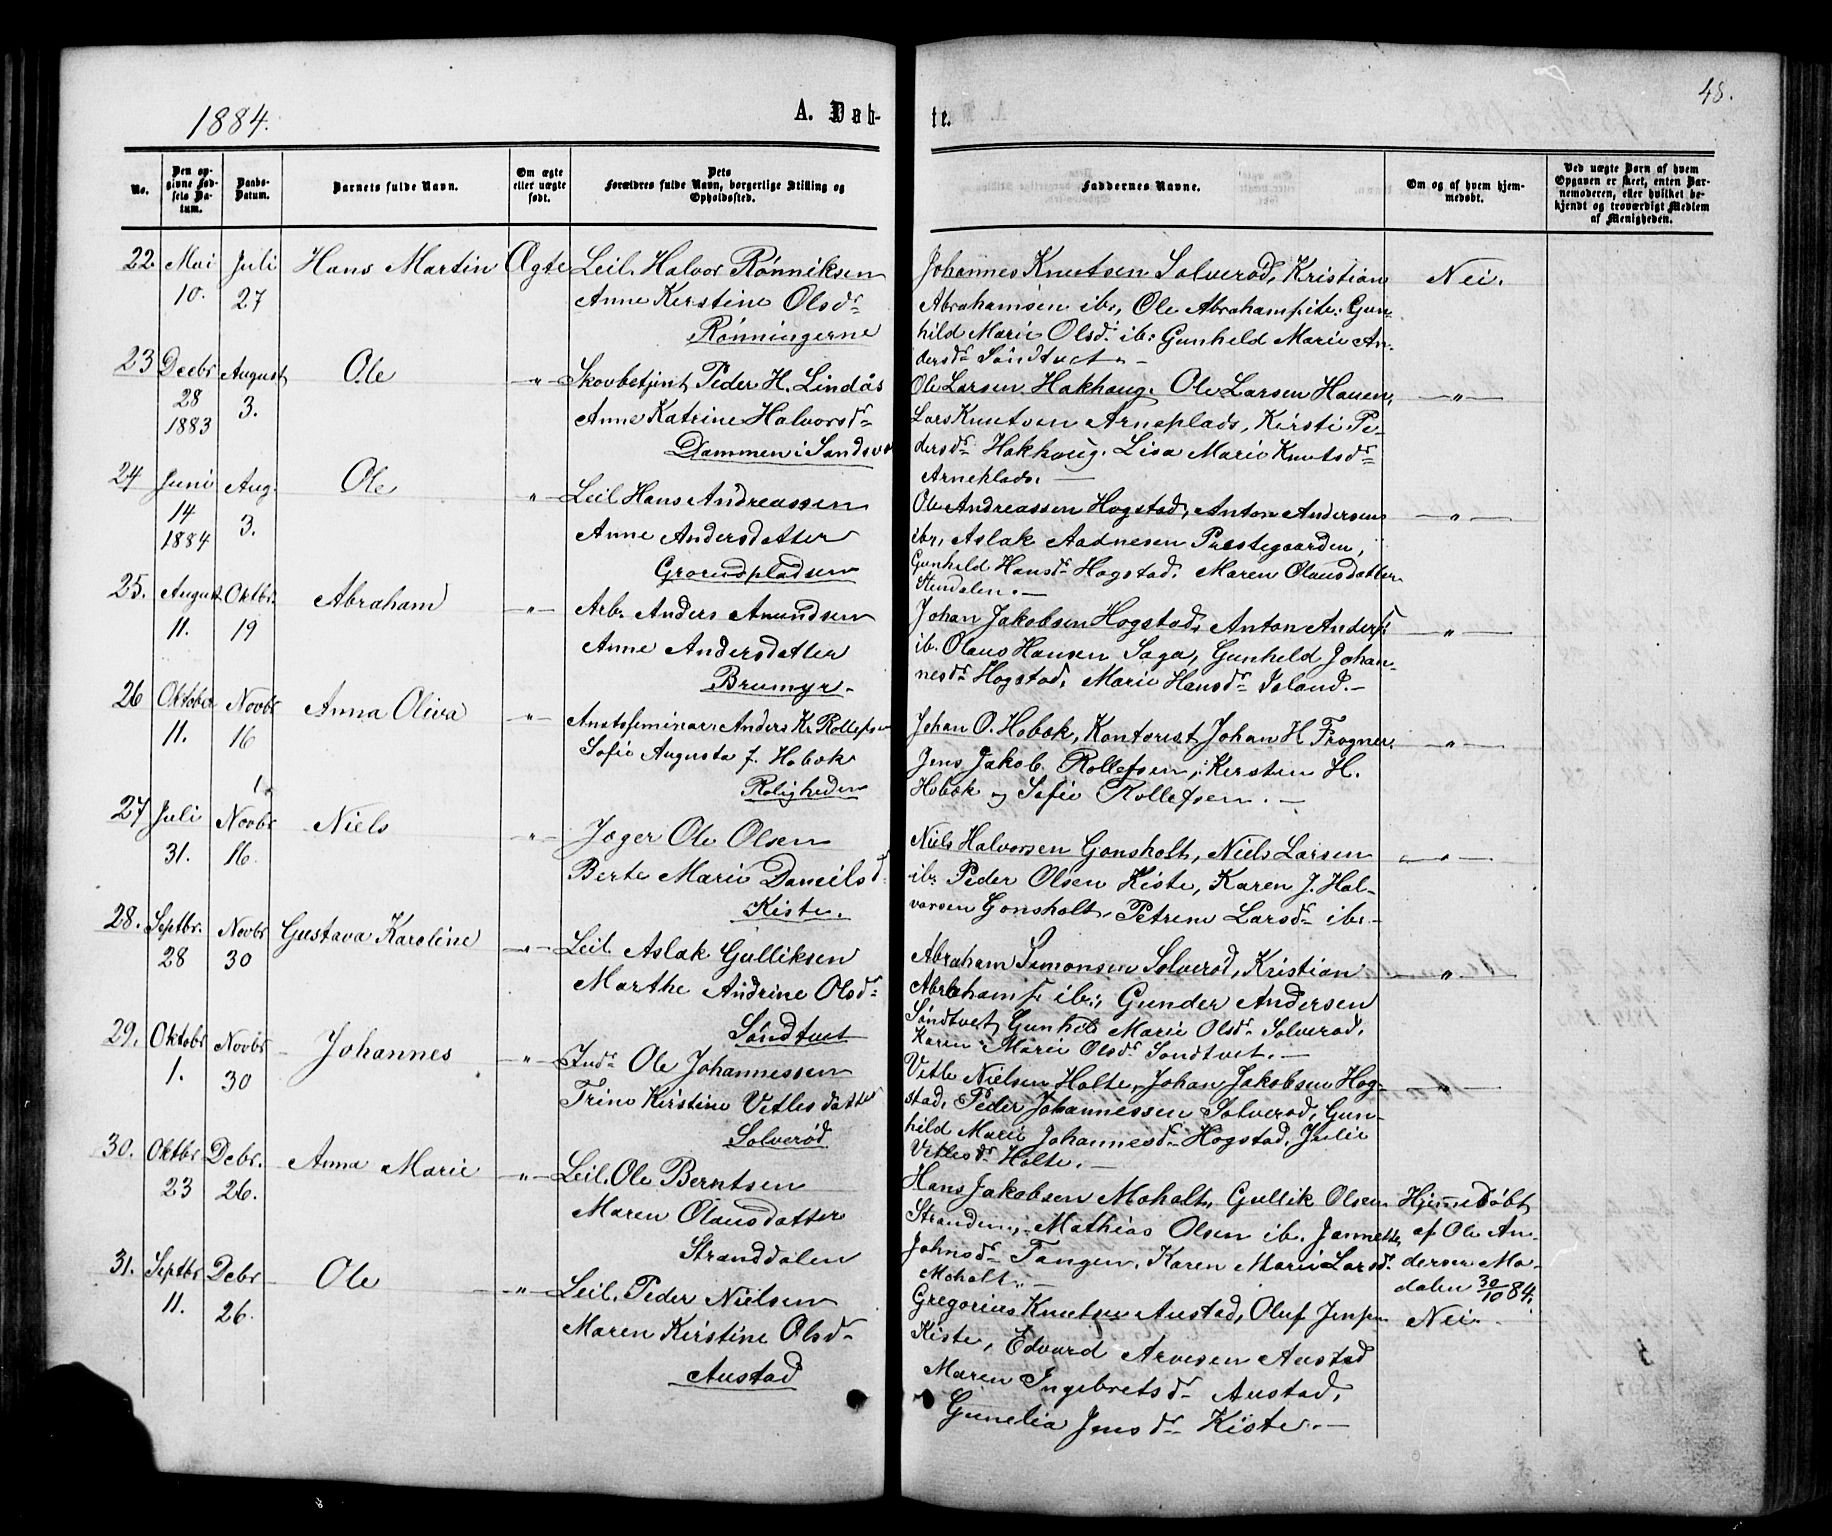 1884.
A. Døb-
te.
48.
No.
Den op-
givne Fød-
sels Da-
tum.
Daabs-
Datum.
Barnets fulde Navn.
Om ægte
eller uægte
født.
Dets
Forældres fulde Navn, borgerlige Stilling og
Opholdssted.
Faddernes Navne.
Om og af hvem hjem-
medøbt.
Ved uægte Børn af hvem
Opgaven er skeet, enten Bar-
nemoderen, eller hvilket be-
kjendt og troværdigt Medlem
af Menigheden.
22. Mai 10. Juli 27 Hans Martin Ægte
Leil. Halvor Rønniksen
Anne Kerstine Olsdr
Rønningerne
Johannes Knutsen Solverød, Kristian
Abrahamsen ib., Ole Abrahamsen ib. Gun-
hild Marie Olsd. ib. Gunhild Marie An-
dersdr Søndtvet. —
Nei.
23 Decbr 28 1883 August 3. Ole —"—
Skovbetjent Peder H. Lindås
Anne Katrine Halvorsdr
Dammen i Sandsv
Ole Larsen Hakhaug. Ole Larsen Hauen,
Lars Knutsen Arneplads, Kirsti Pe-
dersdr Hakhoug. Lisa Marie Knutsdr
Arneplads. —
—"—
24 Juni 14 1884 Aug. 3. Ole —"—
Leil Hans Andreassen
Anne Andersdatter
Grorudpladsen
Ole Andreassen Hogstad, Anton Andersen
ib., Aslak Aadnesen Prestegaarden,
Gunhild Hansdr Hogstad, Maren Olausdatter
Stendalen. —
—"—
25. August 11. Oktbr. 19 Abraham —"—
Arb. Anders Amundsen
Anne Andersdatter
Brumyr.
Johan Jakobsen Hogstad, Anton Anders.
ib. Olaus Hansen Saga, Gunhild Johan-
nesdr Hogstad, Marie Hansdr Island. —
—"—
26 Oktober 11. Novbr 16 Anna Oliva —"—
Amtsseminar. Anders Kr. Rollefsen
Sofie Augusta f. Hobæk
Roligheden
Johan O. Hobæk, Kontorist Johan H. Frogner,
Jens Jakob Rollefsen, Kersten H.
Hobæk og Sofie Rollefsen. —
—"—
27 Juli 31. Novbr 16. Niels —"—
Jæger Ole Olsen
Berte Marie Daneilsd.
Kiste.
Niels Halvorsen Gonsholt, Niels Larsen
ib. Peder Olsen Kiste, Karen J. Hal-
vorsen Gonsholt, Petrine Larsdr ib. —
—"—
28. Septbr. 28 Novbr 30 Gustava Karoline —"—
Leil. Aslak Gulliksen
Marthe Andrine Olsdr
Søndtvet
Abraham Simonsen Solverød, Kristian
Abrahams. ib., Gunder Andersen
Søndtvet, Gunhild Marie Olsdr Solverød,
Karen Marie Olsdr Søndtvet. —
—"—
29. Oktobr 1. Novbr 30 Johannes —"—
Indr Ole Johannessen
Trine Kirstine Vetlesdatter
Solverød
Vetle Nielsen Holte, Johan Jakobsen Hog-
stad, Peder Johannessen Solverød, Gun-
hild Marie Johannesdr Hogstad, Julie
Vetlesdr Holte. —
—"—
30. Oktbr 23 Debr. 26. Anna Marie —"—
Leil. Ole Berntsen
Maren Olausdatter
Stranddalen
Hans Jakobsen Moholt, Gullik Olsen
Stranden, Mathias Olsen ib. Jannette
Johnsdr Tangen, Karen Marie Larsd.
Moholt. —
Hjemmedøbt
af Ole An-
dersen Mo-
dalen 30/10 84.
31. Septbr 11. Debr 26. Ole —"—
Leil. Peder Nielsen
Maren Kirstine Olsdr
Austad
Gregorius Knutsen Austad, Oluf Jensen
Kiste, Edvard Arvesen Austad
Maren Ingebretsdr Austad,
Gunelia Jensdr Kiste. —
Nei.